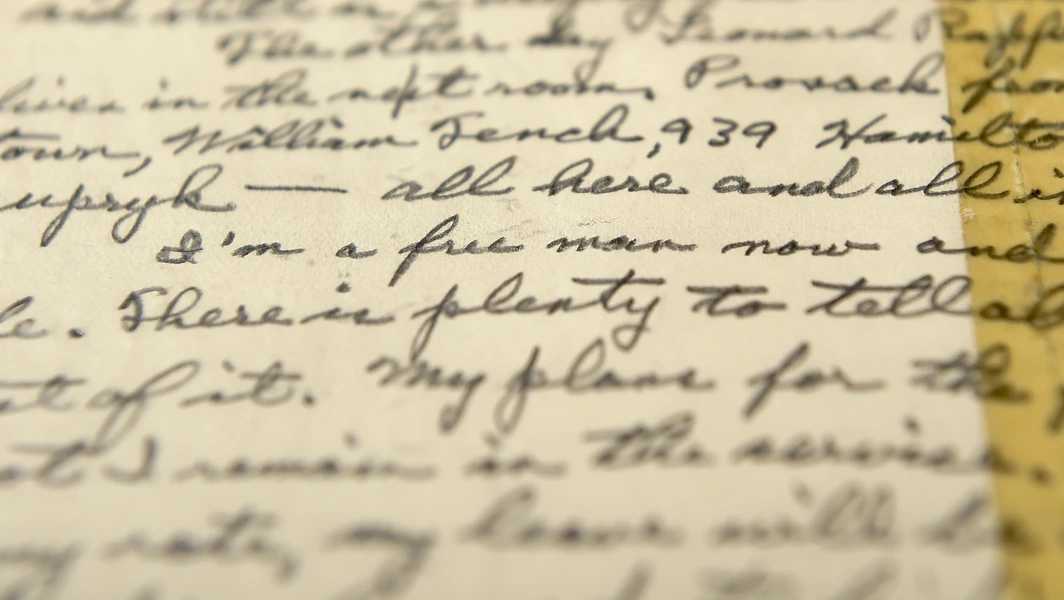 The other day Leonard
lives in the next room, Provack from
town, William Tench, 939 Hamilto
upryk — all here and all i
I'm a free man now and
le. There is plenty to tell a
st of it. My plans for the
t I remain in the service.
my rate, my leave will be